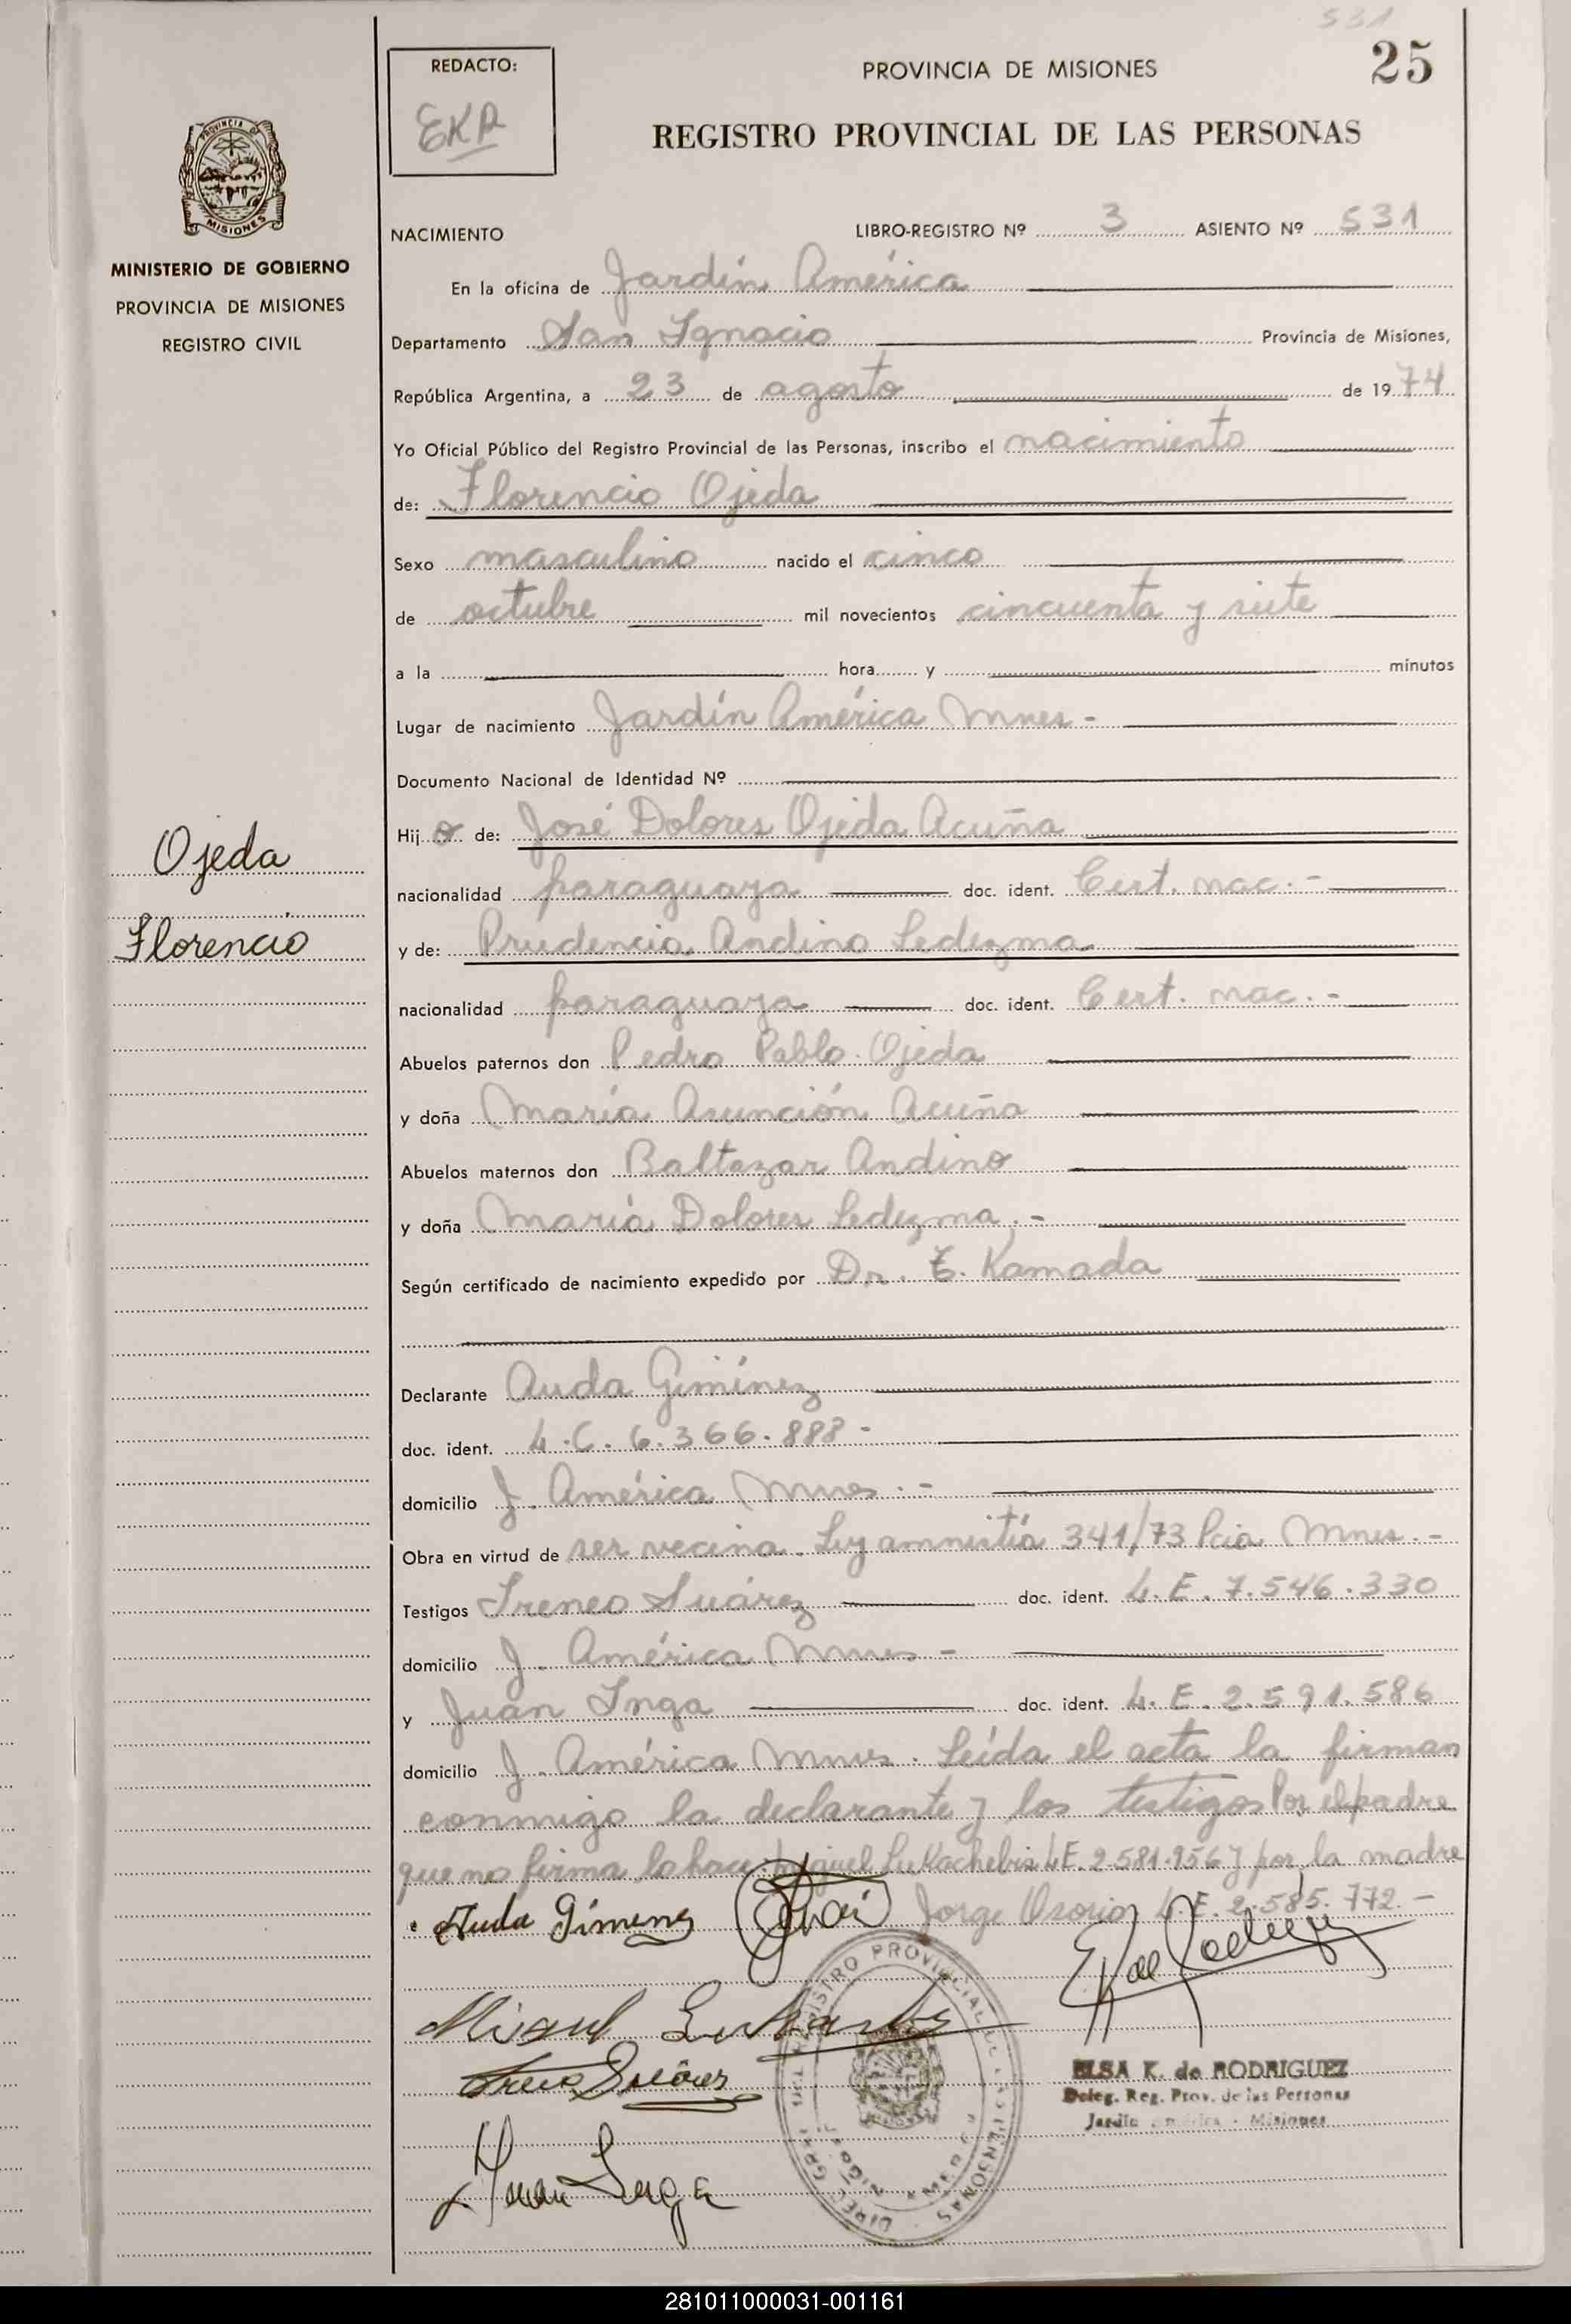 531
25
REDACTO:
EKR
PROVINCIA DE MISIONES
REGISTRO PROVINCIAL DE LAS PERSONAS
PROVINCIA DE
MISIONES
MINISTERIO DE GOBIERNO
PROVINCIA DE MISIONES
REGISTRO CIVIL
Ojeda
Florencio
NACIMIENTO LIBRO-REGISTRO Nº 3 ASIENTO Nº 531
En la oficina de Jardín América
Departamento San Ignacio Provincia de Misiones,
República Argentina, a 23 de agosto de 1974
Yo Oficial Público del Registro Provincial de las Personas, inscribo el nacimiento
de: Florencio Ojeda
Sexo masculino nacido el cinco
de octubre mil novecientos cincuenta y siete
a la hora y minutos
Lugar de nacimiento Jardín América Mnes -
Documento Nacional de Identidad Nº
Hijo de: José Dolores Ojeda Acuña
nacionalidad paraguaya doc. ident. Cert. nac. -
y de: Prudencia Andino Ledezma
nacionalidad paraguaya doc. ident. Cert. nac. -
Abuelos paternos don Pedro Pablo Ojeda
y doña María Asunción Acuña
Abuelos maternos don Baltazar Andino
y doña María Dolores Ledezma. -
Según certificado de nacimiento expedido por Dr. Kamada
Declarante Auda Giménez
doc. ident. L.C. 6.366.888 -
domicilio J. América Mnes. -
Obra en virtud de ser vecina. Ley amnistía 341/73 Pcia Mnes. -
Testigos Ireneo Suárez doc. ident. L.E. 7.546.330
domicilio J. América Mnes -
y Juan Inga doc. ident. L.E. 2.591.586
domicilio J. América Mnes. Leída el acta la firman
conmigo la declarante y los testigos Por el padre
que no firma lo hace Miguel L.E. 2.581.956 y por la madre
Jorge Osorio L.E. 2.585.772. -
Auda Gimenez
Miguel
Juan Inga
ELSA K. de RODRIGUEZ
Deleg. Reg. Prov. de las Personas
Jardín América - Misiones
281011000031-001161